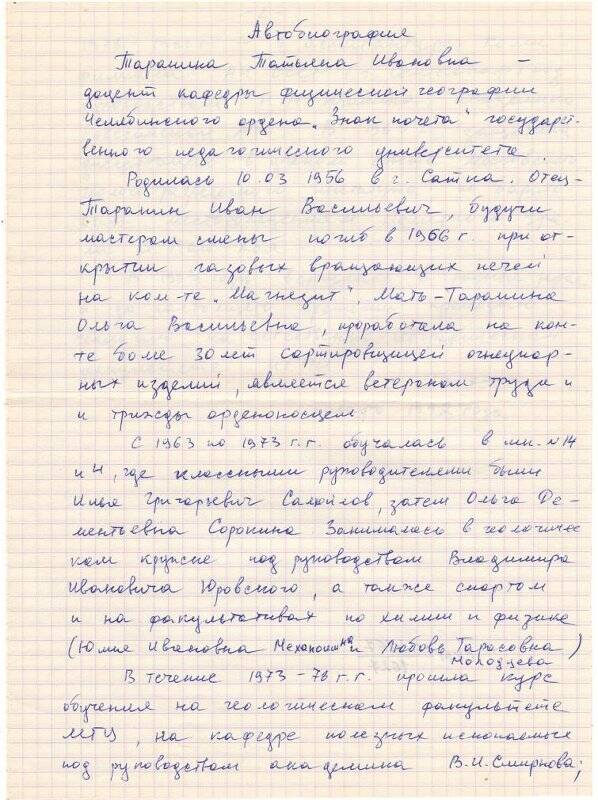 Автобиография
Таранина Татьяна Ивановна –
доцент кафедры физической географии
Челябинского ордена „Знак почета" государст-
венного педагогического университета.
Родилась 10.03 1956 в г. Сатка. Отец-
Таранин Иван Васильевич, будучи
мастером смены погиб в 1966 г. при от-
крытии газовых вращающих печей
на ком-те „Магнезит". Мать-Таранина
Ольга Васильевна, проработала на ком-
те более 30 лет сортировщицей огнеупор-
ных изделий, является ветераном труда и
и трижды орденоносцем
С 1963 по 1973 г.г. обучалась в шк. №14
и 4, где классными руководителями были
Илья Григорьевич Самойлов, затем Ольга Де-
ментьевна Сорокина Занималась в геологичес
ком кружке под руководством Владимира
Ивановича Юровского, а также спортом
и на факультативах по химии и физике
(Юлия Ивановна и Любовь Тарасовна)
Молодцева
В течение 1973-78 г.г. прошла курс
обучения на геологическом факультете
МГУ, на кафедре полезных ископаемых
под руководством академика В.И. Смирнова;